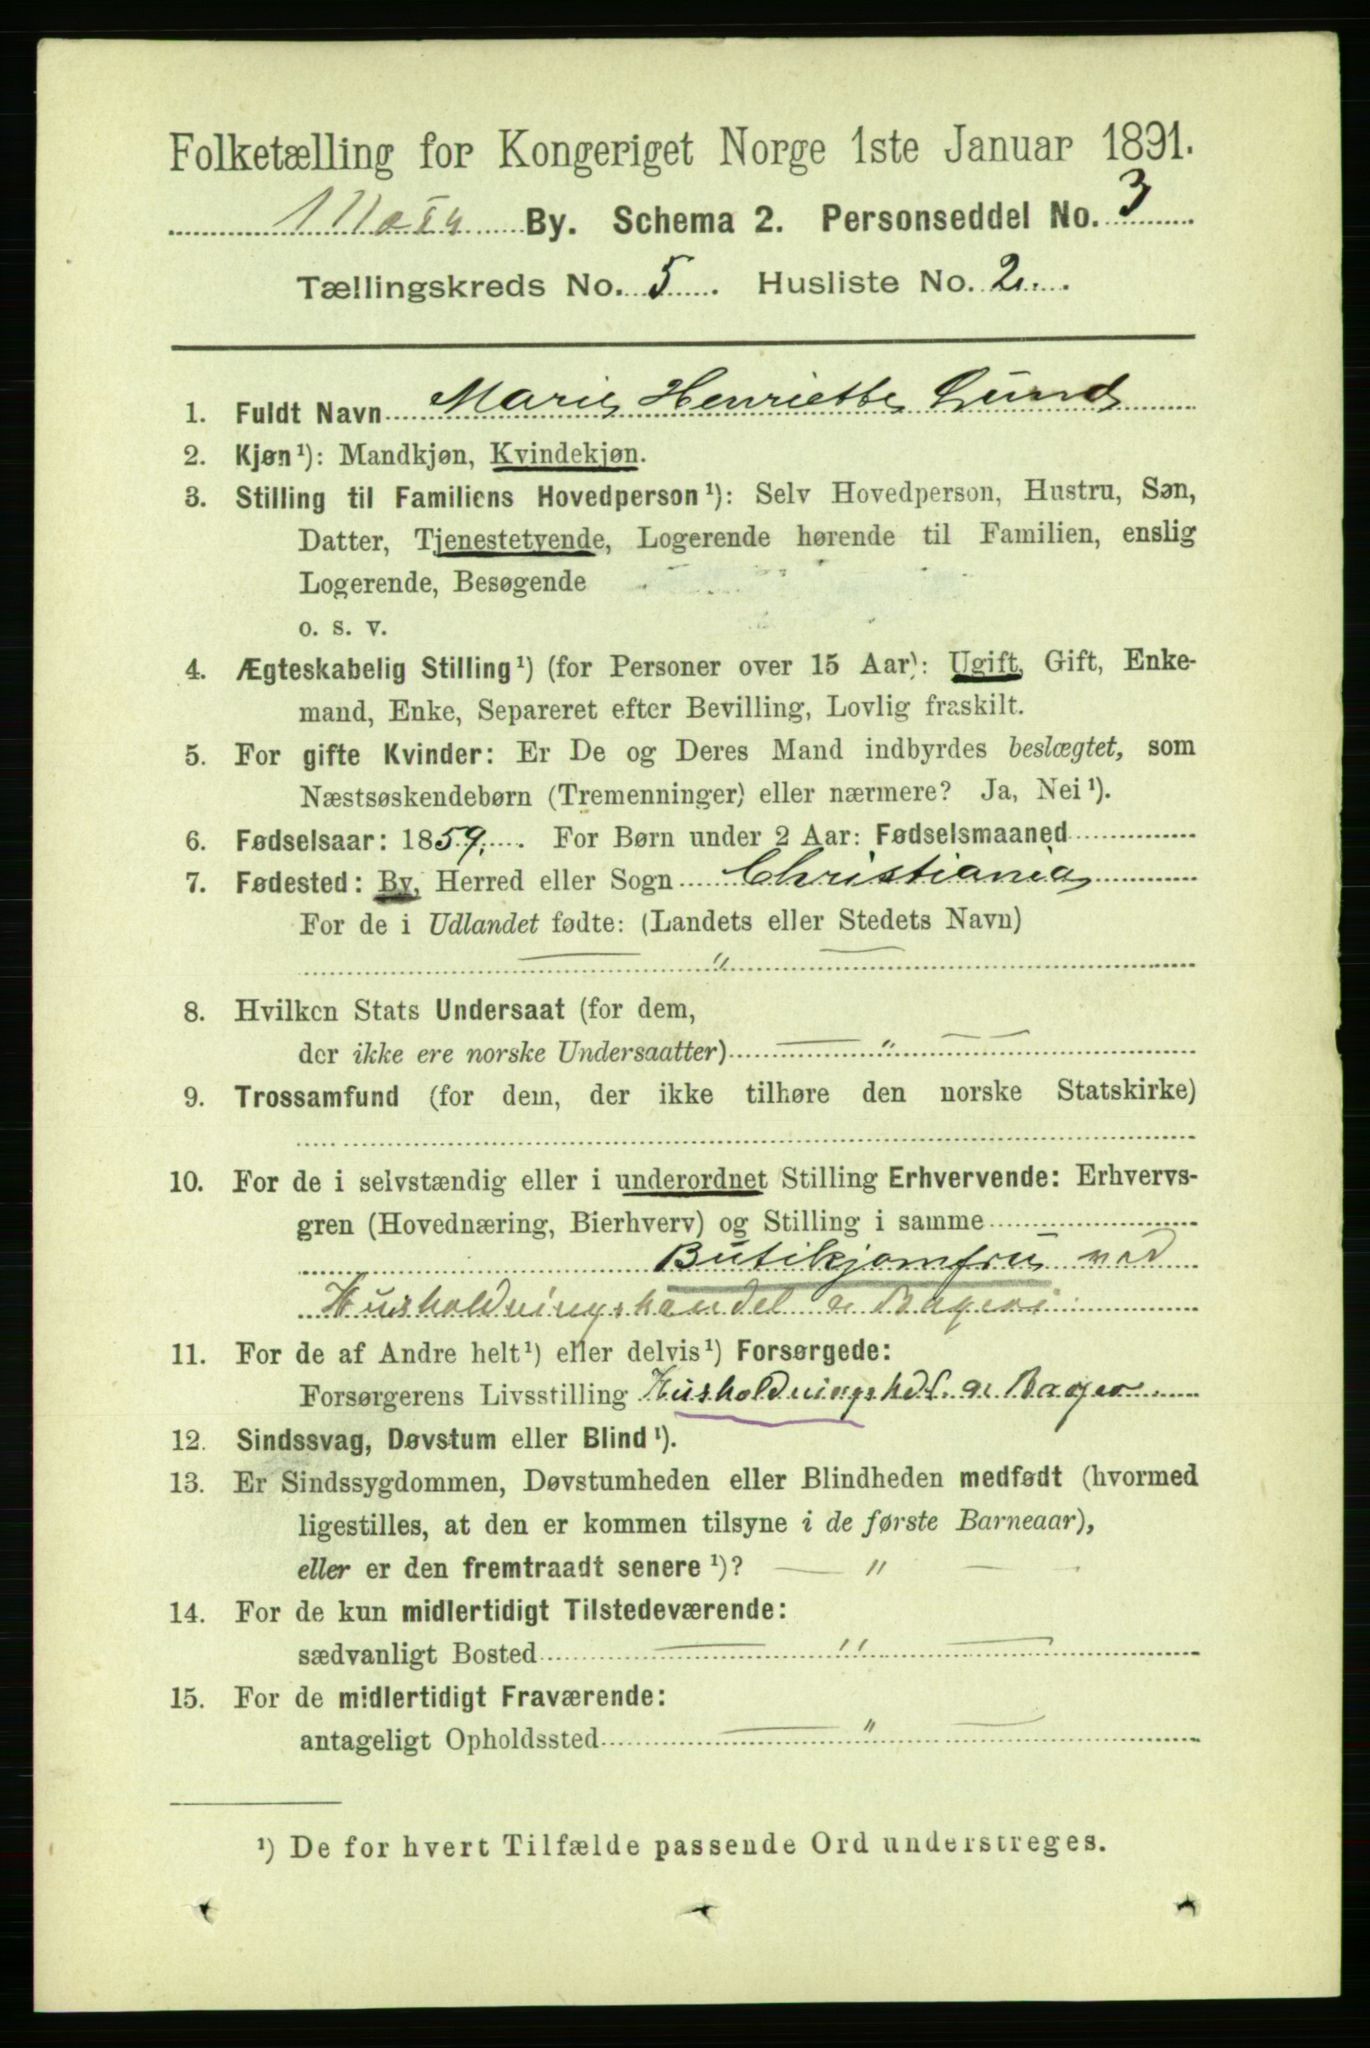 Folketælling for Kongeriget Norge 1ste Januar 1891.
Moss By. Schema 2. Personseddel No. 3
Tællingskreds No. 5. Husliste No. 2.
1. Fuldt Navn Marie Henriette Lund
2. Kjøn¹): Mandkjøn, Kvindekjøn.
3. Stilling til Familiens Hovedperson¹): Selv Hovedperson, Hustru, Søn,
Datter, Tjenestetyende, Logerende hørende til Familien, enslig
Logerende, Besøgende
o. s. v.
4. Ægteskabelig Stilling¹) (for Personer over 15 Aar): Ugift, Gift, Enke-
mand, Enke, Separeret efter Bevilling, Lovlig fraskilt.
5. For gifte Kvinder: Er De og Deres Mand indbyrdes beslægtet, som
Næstsøskendebørn (Tremenninger) eller nærmere? Ja, Nei¹).
6. Fødselsaar: 1859. For Børn under 2 Aar: Fødselsmaaned
7. Fødested: By, Herred eller Sogn Christiania
For de i Udlandet fødte: (Landets eller Stedets Navn)
— " —
8. Hvilken Stats Undersaat (for dem,
der ikke ere norske Undersaatter) — " —
9. Trossamfund (for dem, der ikke tilhøre den norske Statskirke)
10. For de i selvstændig eller i underordnet Stilling Erhvervende: Erhvervs-
gren (Hovednæring, Bierhverv) og Stilling i samme
Butikjomfru ved
Husholdningshandel & Bageri
11. For de af Andre helt¹) eller delvis¹) Forsørgede:
Forsørgerens Livsstilling Husholdningshdl. & Bager
12. Sindssvag, Døvstum eller Blind¹).
13. Er Sindssygdommen, Døvstumheden eller Blindheden medfødt (hvormed
ligestilles, at den er kommen tilsyne i de første Barneaar),
eller er den fremtraadt senere¹)? — " —
14. For de kun midlertidigt Tilstedeværende:
sædvanligt Bosted — " —
15. For de midlertidigt Fraværende:
antageligt Opholdssted — " —
¹) De for hvert Tilfælde passende Ord understreges.